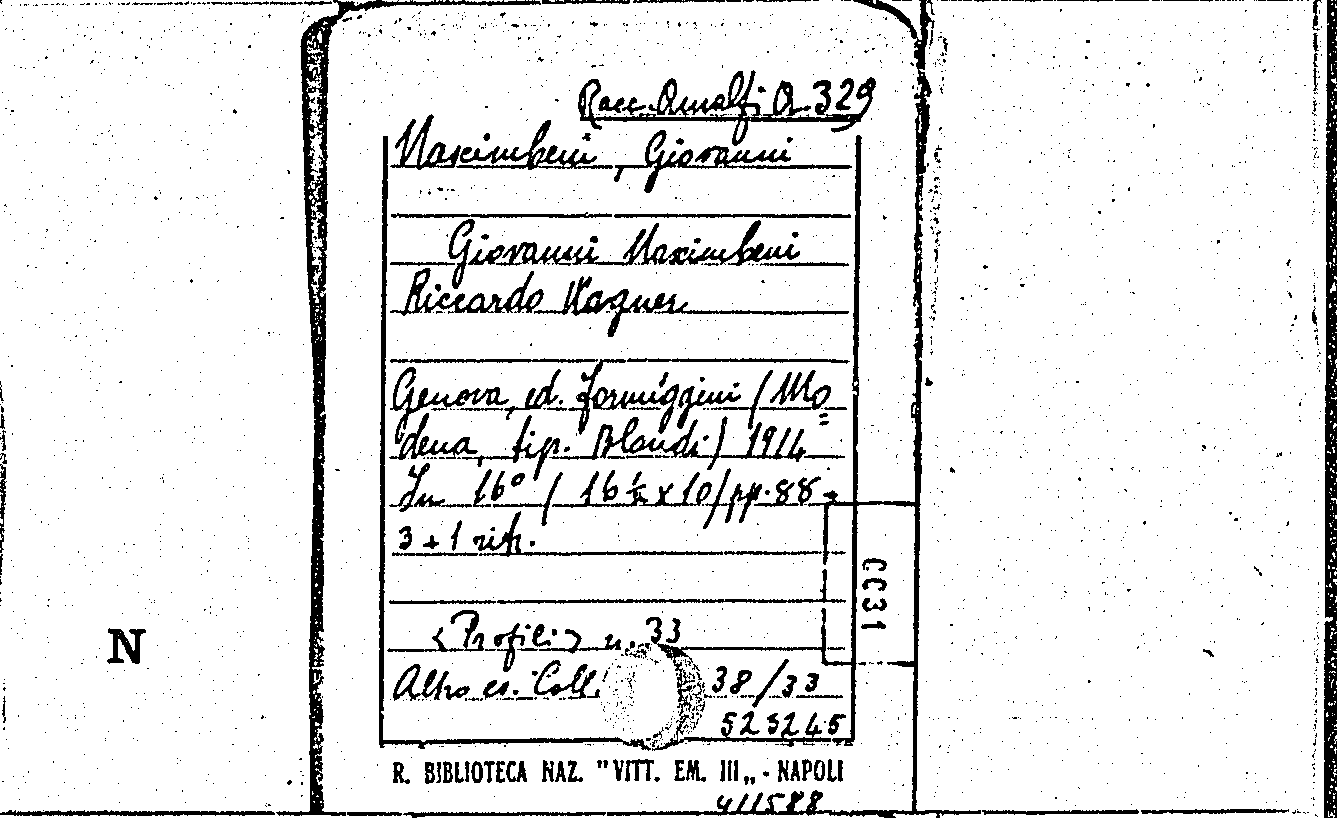 Racc. Amalfi A. 329
Nascimbeni, Giovanni
Giovanni Nascimbeni
Riccardo Wagner
Genova, ed. Formiggini (Mo=
dena, tip. Blondi) 1914
In 16° (16 ½ x 10) pp. 88 +
3 + 1 ritr.
<Profili> n. 33
Altro es. Coll. 38/33
523245
R. BIBLIOTECA NAZ. "VITT. EM. III„ - NAPOLI
411588
0031
N